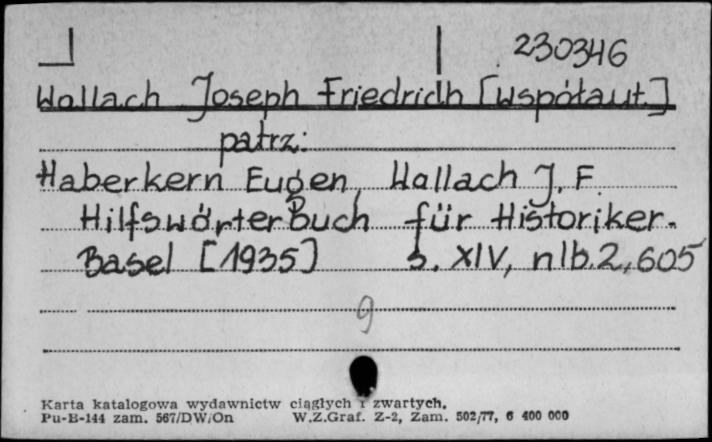 230346
Wallach Joseph Friedrich [współaut.]
patrz:
Haberkern Eugen, Wallach J. F.
Hilfswörterbuch für Historiker.
Basel [1935] s. XIV, nlb. 2, 605
9
Karta katalogowa wydawnictw ciągłych i zwartych.
Pu-B-144 zam. 567/DW/On W.Z.Graf. Z-2, Zam. 502/77, 6 400 000